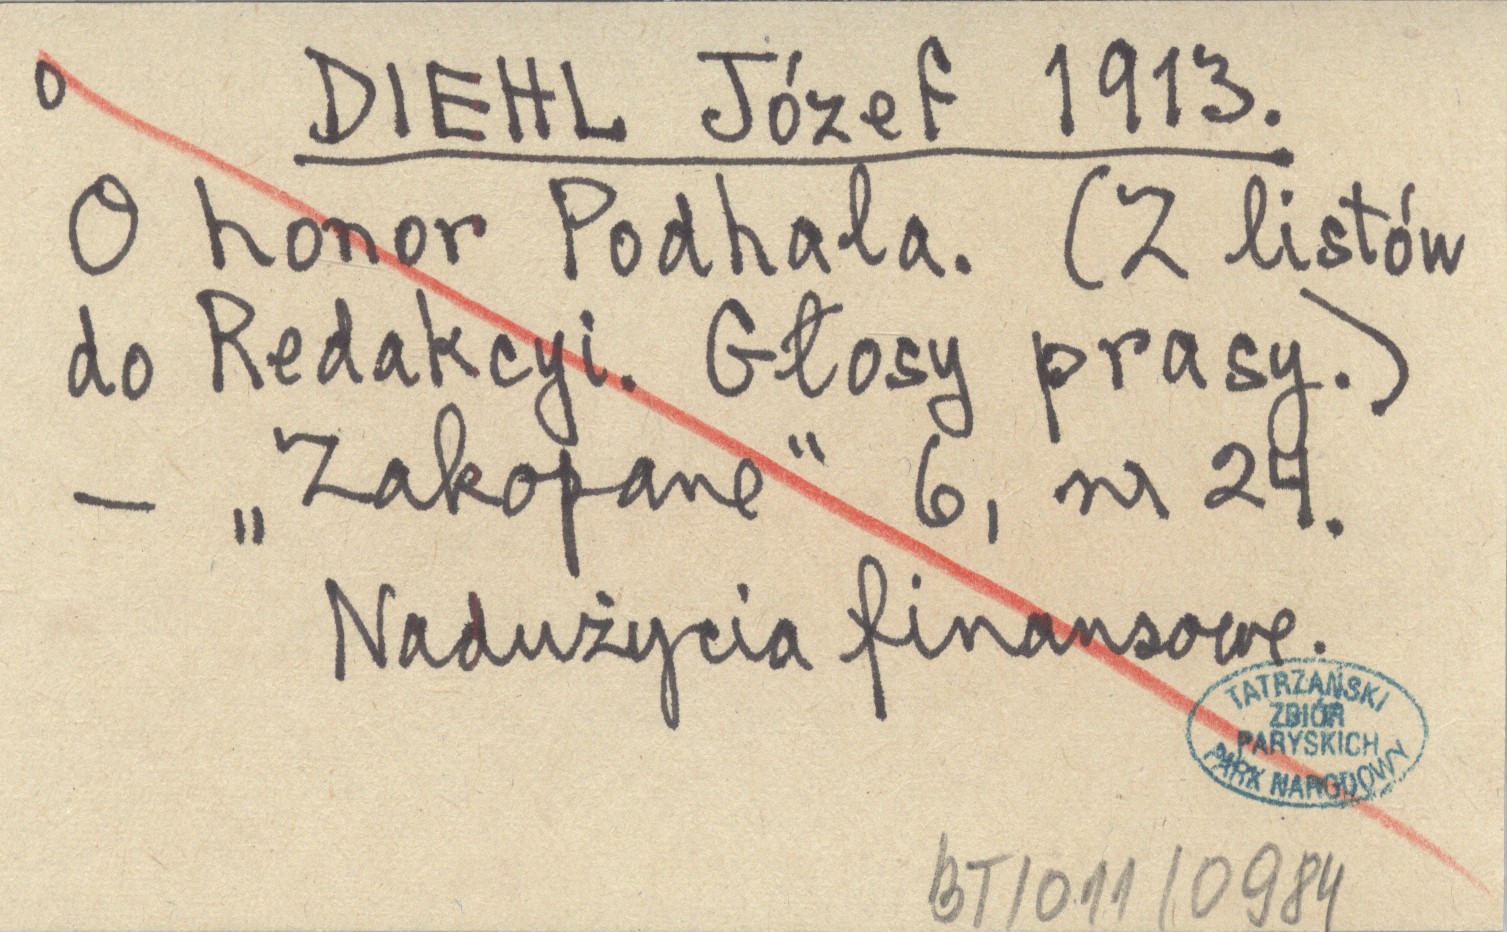 o DIEHL Józef 1913.
O honor Podhala. (Z listów
do Redakcyi. Głosy prasy.)
— „Zakopane“ 6, nr 24.
Nadużycia finansowe.
TATRZAŃSKI
ZBIÓR
PARYSKICH
PARK NARODOWY
BT/011/0984